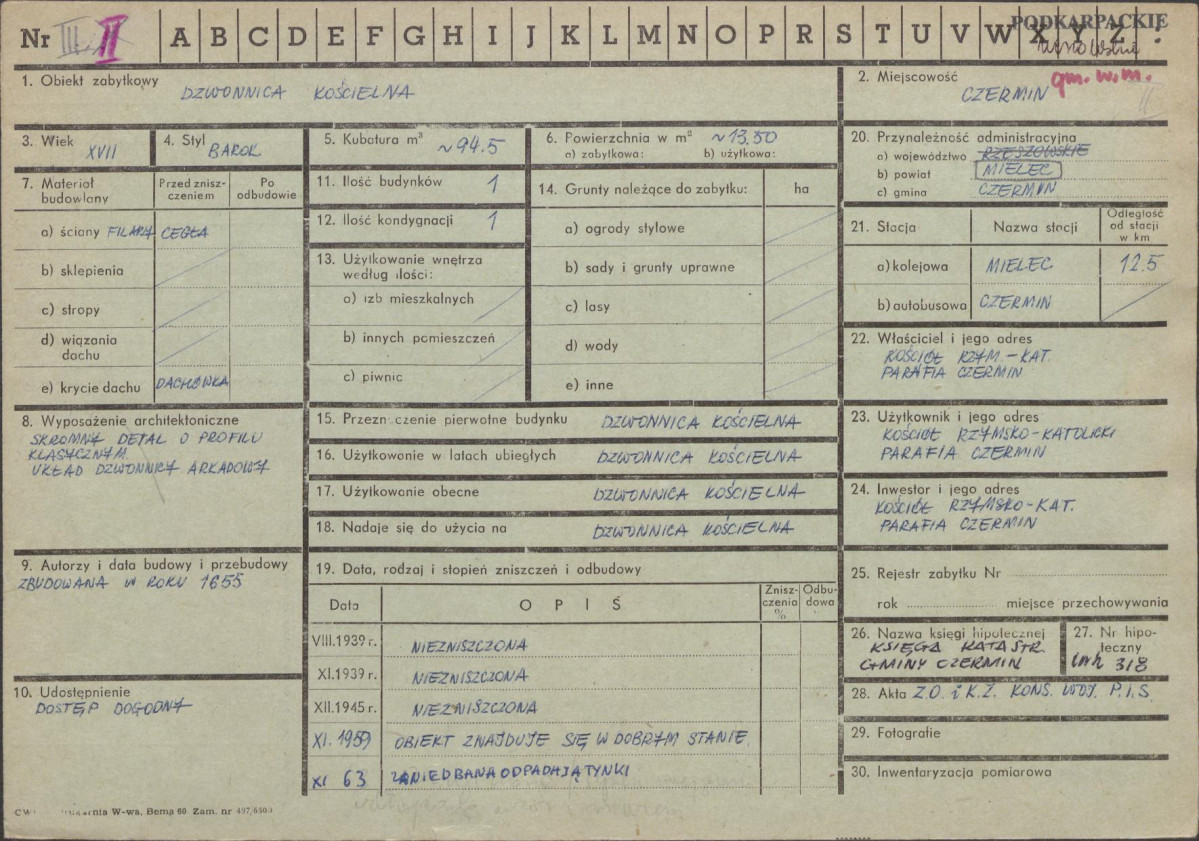 Nr III II A B C D E F G H I J K L M N O P R S T U V W X Y Z !
PODKARPACKIE
1. Obiekt zabytkowy
DZWONNICA KOŚCIELNA
2. Miejscowość
gm. w.m.
CZERMIN
II
3. Wiek
XVII
4. Styl
BAROK
5. Kubatura m³
~94.5
6. Powierzchnia w m²
~13.50
a) zabytkowa: b) użytkowa:
7. Materiał budowlany
Przed zniszczeniem
Po odbudowie
a) ściany FILARY CEGŁA
b) sklepienia
c) stropy
d) wiązania dachu
e) krycie dachu DACHÓWKA
8. Wyposażenie architektoniczne
SKROMNY DETAL O PROFILU
KLASYCZNYM
UKŁAD DZWONNICY ARKADOWY
9. Autorzy i data budowy i przebudowy
ZBUDOWANA W ROKU 1655
10. Udostępnienie
DOSTĘP DOGODNY
Bema 60 Zam. nr
11. Ilość budynków 1
12. Ilość kondygnacji 1
13. Użytkowanie wnętrza
według ilości:
a) izb mieszkalnych
b) innych pomieszczeń
c) piwnic
14. Grunty należące do zabytku: ha
a) ogrody stylowe
b) sady i grunty uprawne
c) lasy
d) wody
e) inne
15. Przezn czenie pierwotne budynku DZWONNICA KOŚCIELNA
16. Użytkowanie w latach ubiegłych DZWONNICA KOŚCIELNA
17. Użytkowanie obecne DZWONNICA KOŚCIELNA
18. Nadaje się do użycia na DZWONNICA KOŚCIELNA
19. Data, rodzaj i stopień zniszczeń i odbudowy
Data
O P I S
Zniszczenia %
Odbudowa
VIII.1939 r. NIEZNISZCZONA
XI.1939 r. NIEZNISZCZONA
XII.1945 r. NIEZNISZCZONA
XI. 1959 OBIEKT ZNAJDUJE SIĘ W DOBRYM STANIE
XI 63 ZANIEDBANA ODPADAJĄ TYNKI
20. Przynależność administracyjna
a) województwo RZESZOWSKIE
b) powiat MIELEC
c) gmina CZERMIN
21. Stacja
Nazwa stacji
Odległość od stacji w km
a) kolejowa MIELEC 12.5
b) autobusowa CZERMIN
22. Właściciel i jego adres
KOŚCIÓŁ RZYM-KAT.
PARAFIA CZERMIN
23. Użytkownik i jego adres
KOŚCIÓŁ RZYMSKO-KATOLICKI
PARAFIA CZERMIN
24. Inwestor i jego adres
KOŚCIÓŁ RZYMSKO-KAT.
PARAFIA CZERMIN
25. Rejestr zabytku Nr
rok miejsce przechowywania
26. Nazwa księgi hipotecznej
KSIĘGA KATASTR.
GMINY CZERMIN
27. Nr hipoteczny
lwh 318
28. Akta Z.O. i K.Z. KONS. WOJ. P.I.S
29. Fotografie
30. Inwentaryzacja pomiarowa